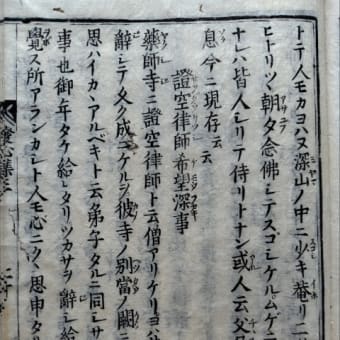 トテ人モカヨハヌ深山ノ中ニ少キ菴リニ
ヒトリツヽ朝夕念佛シテスゴシケルムゲニ
ナレハ皆人シリテ侍リトナン或人云父
息今ニ現存云云
證空律師希望深事
藥師寺ニ證空律師ト云僧アリケリヨハ
辭シテ久ク成ニケルヲ彼寺ノ別當ノ闕ニ
思ハイカヽアルベキト云弟子タルニ同シサ
事也御年タケ給タリツカサヲ辭シ給
覺ス所アランカシト人モ心ニクヽ思申タル